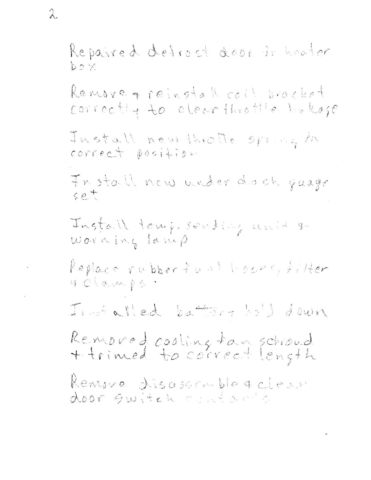 2
Repaired defrost door in heater
box
Remove & reinstall coil bracket
correctly to clear throttle linkage
Install new throttle spring in
correct position
Install new under dash guage
set
Install temp. sending unit &
warning lamp
Replace rubber fuel hoses, filter
& clamps.
Installed battery hold down
Removed cooling fan schoud
+ trimed to correct length
Remove disassemble & clean
door switch contacts